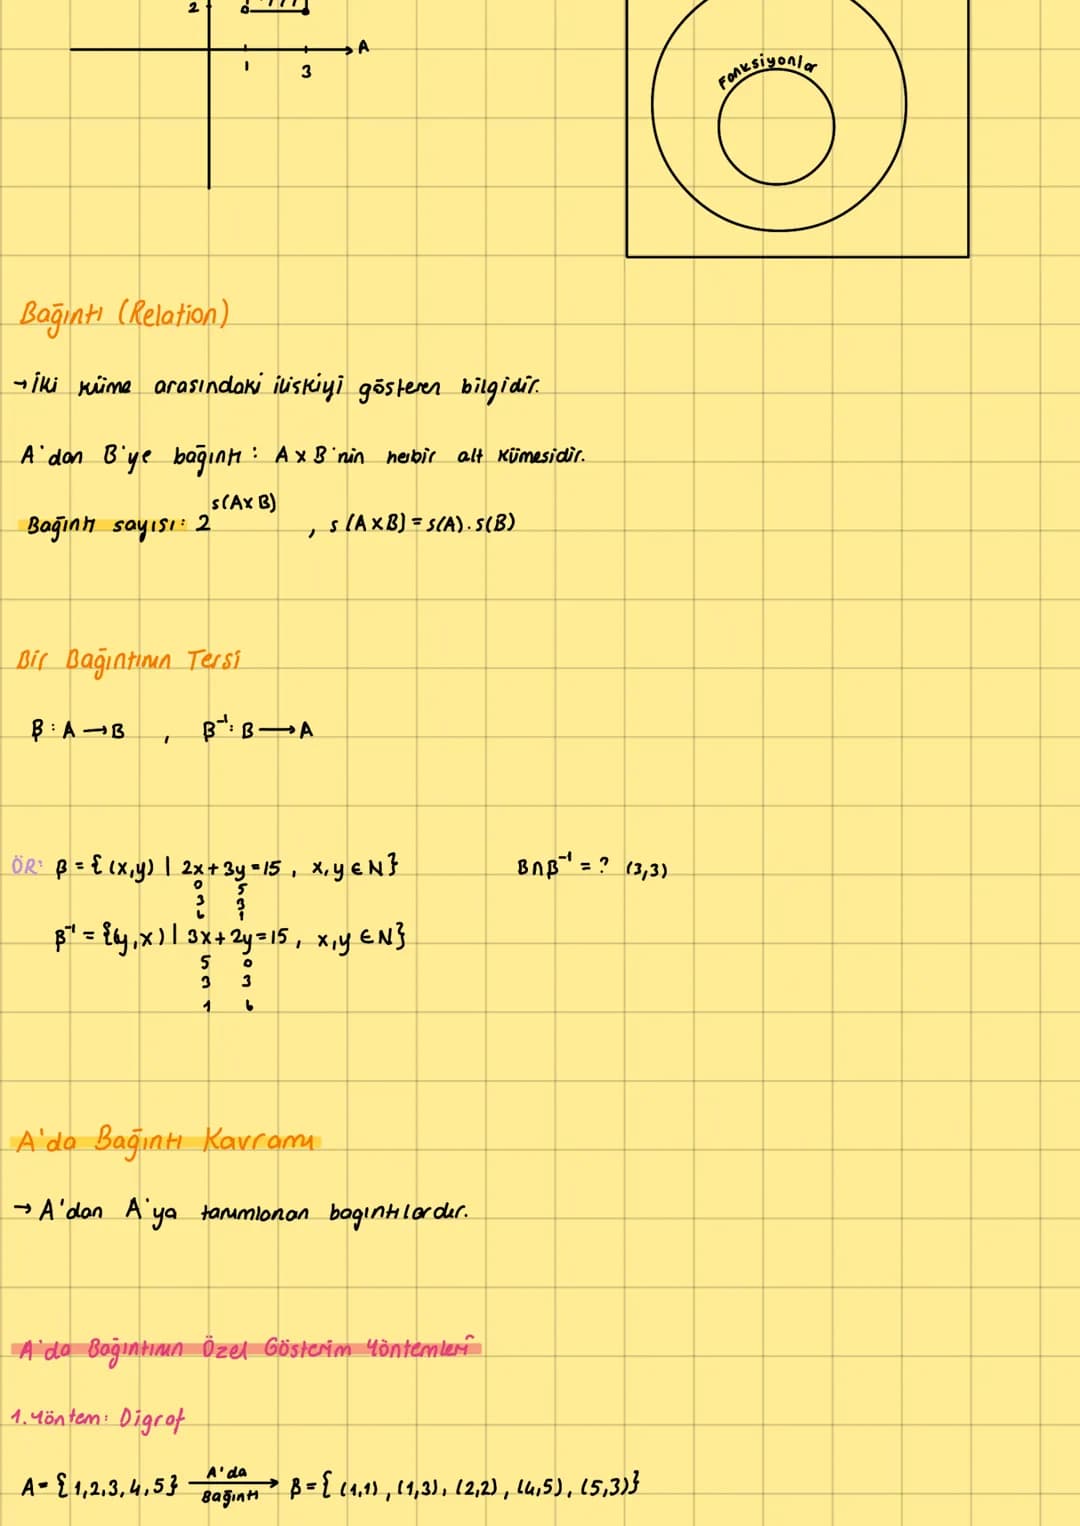 2
A
1
3
Fonksiyonlar
Bağıntı (Relation)
→ İki küme arasındaki iliskiyi gösteren bilgidir.
A'dan B'ye bağıntı : A x B'nin herbir alt kümesidir.
Bağıntı sayısı: 2^s(AxB) , s(AxB) = s(A).s(B)
Bir Bağıntının Tersi
β : A → B , β⁻¹: B → A
ÖR: β = { (x,y) | 2x + 3y = 15 , x,y ∈ N } B∩β⁻¹ = ? (3,3)
0 5
3 3
6 1
β⁻¹ = {(y,x) | 3x + 2y = 15 , x,y ∈ N}
5 0
3 3
1 6
A'da Bağıntı Kavramı
→ A'dan A'ya tanımlanan bagıntılardır.
A'da Bağıntının Özel Gösterim Yöntemleri
1. Yöntem: Digraf
A = { 1,2,3,4,5 } A'da Bağıntı → β = { (1,1) , (1,3) , (2,2) , (4,5) , (5,3) }